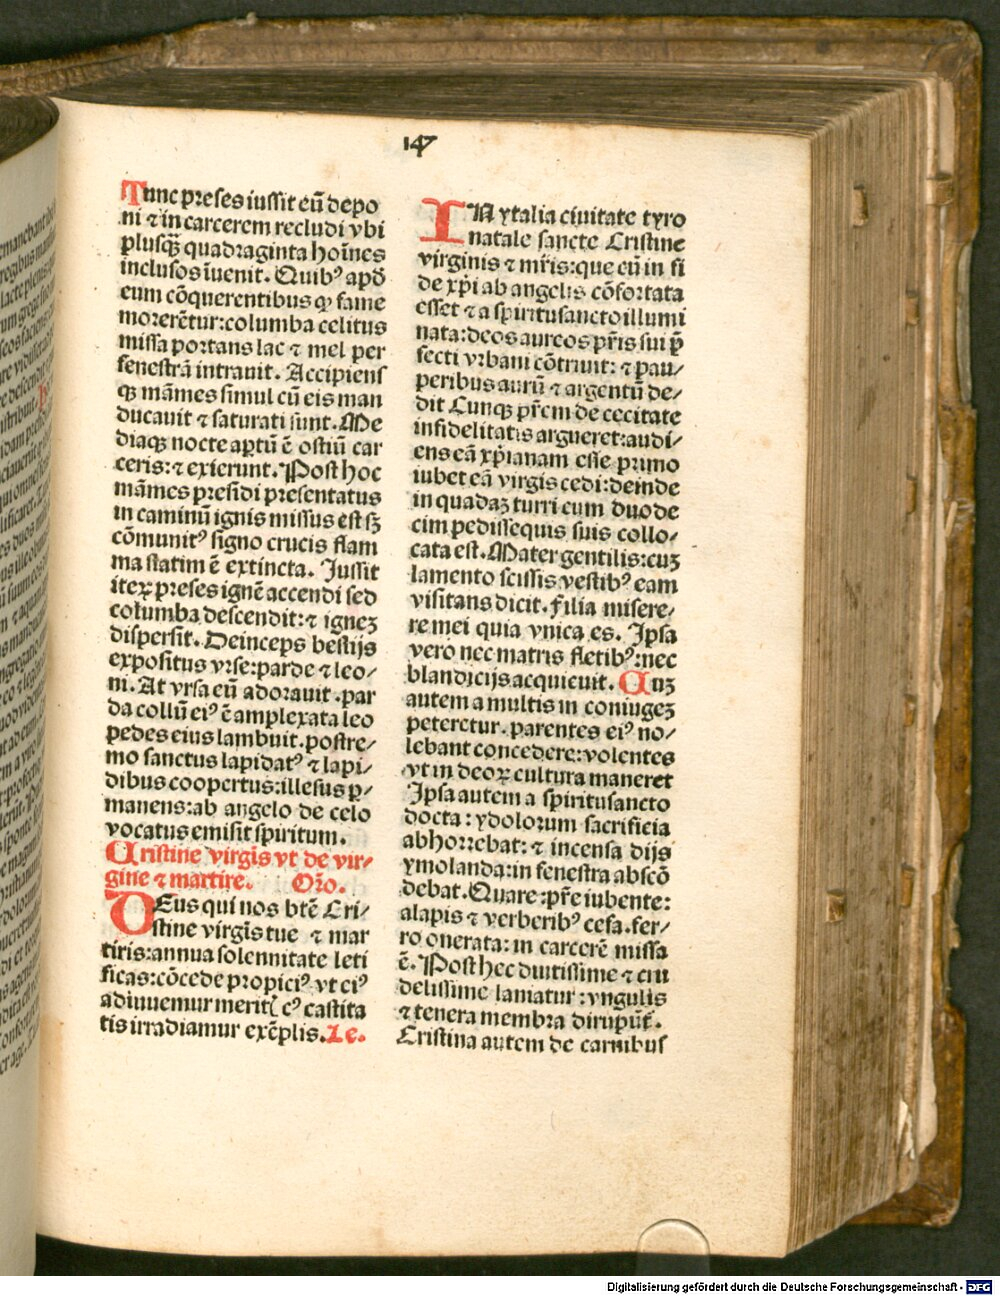 147
Tunc preses iussit eū depo
ni ⁊ in carcerem recludi vbi
plusqꝫ quadraginta hoīnes
inclusos īuenit. Quibꝰ apd̄
eum cōquerentibus ꝙ fame
morerētur: columba celitus
missa portans lac ⁊ mel per
fenestrā intrauit. Accipiens
qꝫ māmes simul cū eis man
ducauit ⁊ saturati sunt. Me
diaqꝫ nocte aꝑtū ē ostiū car
ceris: ⁊ exierunt. Post hoc
māmes presidi presentatus
in caminū ignis missus est sꝫ
cōmunitꝰ signo crucis flam
ma statim ē extincta. Jussit
iteꝝ preses ignē accendi sed
columba descendit: ⁊ ignez
dispersit. Deinceps bestijs
expositus vrse: parde ⁊ leo⸗
ni. At vrsa eū adorauit. par
da collū eiꝰ ē amplexata leo
pedes eius lambuit. postre⸗
mo sanctus lapidatꝰ ⁊ lapi⸗
dibus coopertus: illesus ꝑ⸗
manens: ab angelo de celo
vocatus emisit spiritum.
Cristine virgīs vt de vir⸗
gine ⁊ martire. Oro̅.
DEus qui nos btē Cri⸗
stine virgīs tue ⁊ mar
tiris: annua solennitate leti
ficas: cōcede propiciꝰ vt eiꝰ
adiuuemur merit{ cꝰ castita
tis irradiamur exēplis. Le.
IN ytalia ciuitate tyro
natale sancte Cristine
virginis ⁊ mr̄is: que cū in fi
de xp̄i ab angelis cōfortata
esset ⁊ a spiritusancto illumi
nata: deos aureos pr̄is sui p̄
fecti vrbani cōtriuit: ⁊ pau⸗
peribus aurū ⁊ argentū de⸗
dit Cunqꝫ pr̄em de cecitate
infidelitatis argueret: audi⸗
ens eā xp̄ianam esse primo
iubet eā virgis cedi: deinde
in quadaꝫ turri cum duode
cim pedissequis suis collo⸗
cata est. Mater gentilis: cuꝫ
lamento scissis vestibꝰ eam
visitans dicit. Filia misere⸗
re mei quia vnica es. Ipsa
vero nec matris fletibꝰ: nec
blandicijs acquieuit. Cuꝫ
autem a multis in coniugeꝫ
peteretur. parentes eiꝰ no⸗
lebant concedere: volentes
vt in deoꝝ cultura maneret
Ipsa autem a spiritusancto
docta: ydolorum sacrificia
abhorrebat: ⁊ incensa dijs
ymolanda: in fenestra abscō
debat. Quare: pr̄e iubente:
alapis ⁊ verberibꝰ cesa. fer⸗
ro onerata: in carcerē missa
ē. Post hec diutissime ⁊ cru
delissime laniatur: vngulis
⁊ tenera membra dirupūt̄.
Cristina autem de carnibus
Digitalisierung gefördert durch die Deutsche Forschungsgemeinschaft - DFG